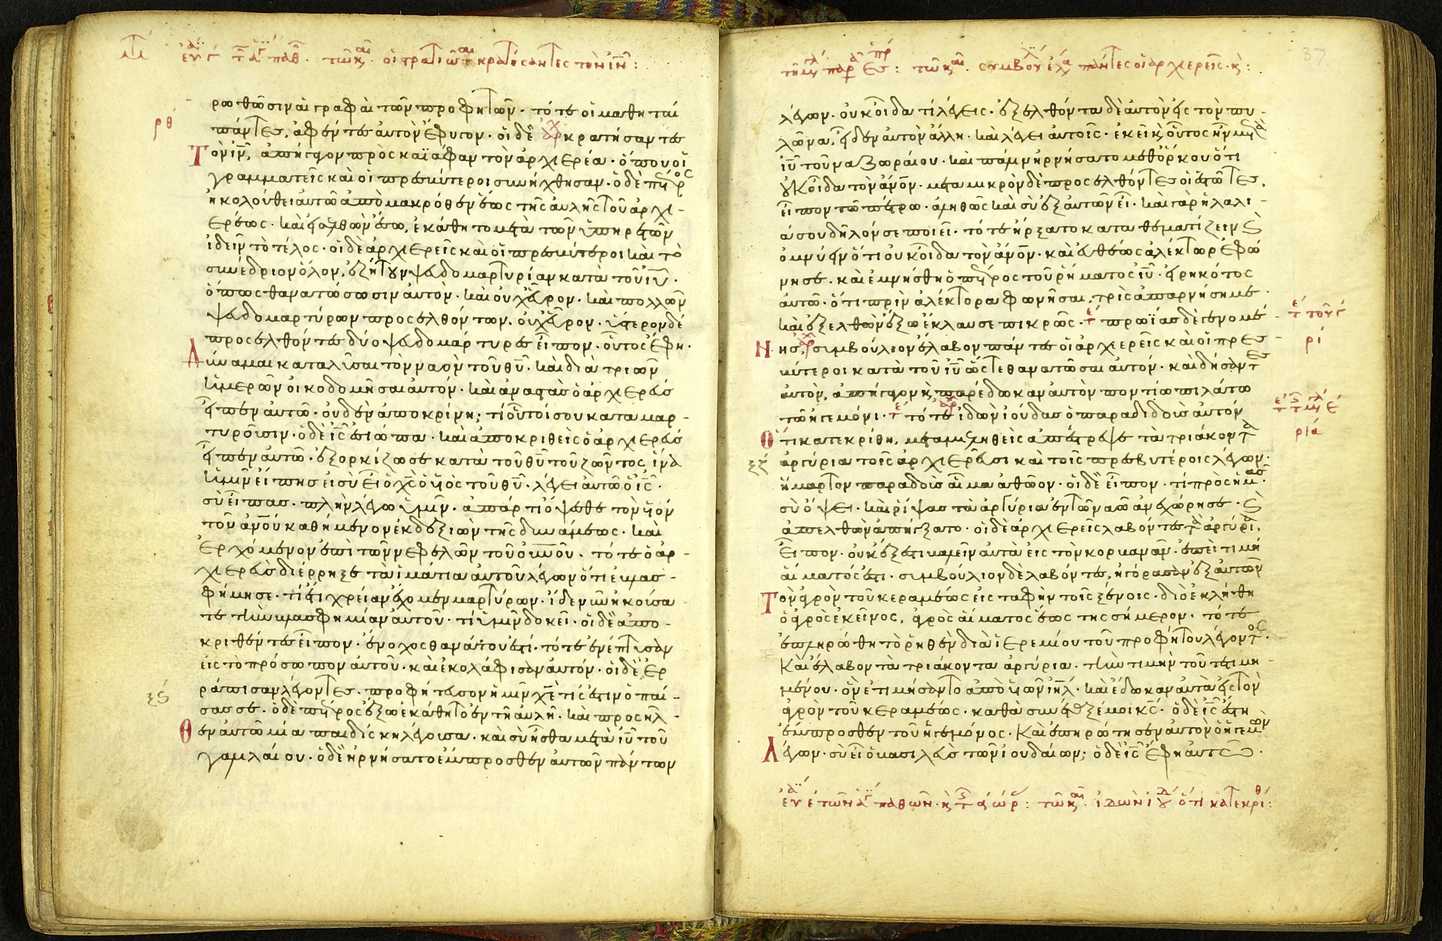 ρωθῶσιν αἱ γραφαὶ τῶν προφητῶν · τότε οἱ μαθηταὶ
πάντες, ἀφέντες αὐτὸν ἔφυγον · οἱ δὲ κρατήσαντες
Τὸν ἰν̅, ἀπήγαγον πρὸς καϊάφαν τὸν ἀρχιερέα · ὅπου οἱ
γραμματεῖς καὶ οἱ πρεσβύτεροι συνήχθησαν · ὁ δὲ πέτρος
ἠκολούθει αὐτῶ ἀπὸ μακρόθεν ἕως τῆς αὐλῆς τοῦ ἀρχι-
ερέως · καὶ εἰσελθὼν ἔσω, ἐκάθητο μετὰ τῶν ὑπηρετῶν
ἰδεῖν τὸ τέλος · οἱ δὲ ἀρχιερεῖς καὶ οἱ πρεσβύτεροι καὶ τὸ
συνέδριον ὅλον, ἐζήτουν ψευδομαρτυρίαν κατὰ τοῦ ἰυ̅ ·
ὅπως θανατώσωσιν αὐτὸν · καὶ οὐχ εὗρον · καὶ πολλῶν
ψευδομαρτύρων προσελθόντων, οὐχ εὗρον · ὕστερον δὲ
προσελθόντες δύο ψευδομάρτυρες εἶπον · οὗτος ἔφη ·
Δύναμαι καταλῦσαι τὸν ναὸν τοῦ θυ̅ · καὶ διὰ τριῶν
ἡμερῶν οἰκοδομῆσαι αὐτόν · καὶ ἀναστὰς ὁ ἀρχιερεὺς
εἶπεν αὐτῶ · οὐδὲν ἀποκρίνη; τί οὗτοί σου καταμαρ-
τυροῦσιν · ὁ δὲ ις̅ ἐσιώπα · καὶ ἀποκριθεὶς ὁ ἀρχιερεὺς
εἶπεν αὐτῶ · ἐξορκίζω σε κατὰ τοῦ θυ̅ τοῦ ζῶντος, ἵνα
ἡμῖν εἴπης εἰ σὺ εἶ ὁ χς̅ ὁ υἱὸς τοῦ θυ̅ · λέγει αὐτῶ ὁ ις̅ ·
σὺ εἶπας · πλὴν λέγω ὑμῖν · ἀπάρτι ὄψεσθε τὸν υἱὸν
τοῦ ἀνου̅ καθήμενον ἐκ δεξιῶν τῆς δυνάμεως · καὶ
ἐρχόμενον ἐπὶ τῶν νεφελῶν τοῦ οὐνου̅ · τότε ὁ ἀρ-
χιερεὺς διέρρηξε τὰ ἱμάτια αὐτοῦ λέγων ὅτι ἐβλασ-
φήμησε · τί ἔτι χρείαν ἔχομεν μαρτύρων · ἴδε νῦν ἠκούσα
τε τὴν βλασφημίαν αὐτοῦ · τί ὑμῖν δοκεῖ · οἱ δὲ ἀπο-
κριθέντες εἶπον · ἔνοχος θανάτου ἐστί · τότε ἐνέπτυσαν
εἰς τὸ πρόσωπον αὐτοῦ · καὶ ἐκολάφισαν αὐτόν · οἱ δὲ ἐρ
ράπισαν λέγοντες · προφήτευσον ἡμῖν χε̅ τίς ἐστιν ὁ παί-
σας σε · ὁ δὲ πέτρος ἔξω ἐκάθητο ἐν τῆ αὐλῆ · καὶ προσῆλ-
Θεν αὐτῶ μία παιδίσκη λέγουσα · καὶ σὺ ἦσθα μετὰ ἰυ̅ τοῦ
γαλιλαίου · ὁ δὲ ἠρνήσατο ἔμπροσθεν αὐτῶν πάντων
λέγων · οὐκ οἶδα τί λέγεις · ἐξελθόντα δὲ αὐτὸν εἰς τὸν πυ-
λῶνα, εἶδεν αὐτὸν ἄλλη · καὶ λέγει αὐτοῖς · ἐκεῖ καὶ οὗτος ἦν μετὰ
ἰυ̅ τοῦ ναζωραίου · καὶ πάλιν ἠρνήσατο μεθ' ὅρκου ὅτι
οὐκ οἶδα τὸν ἀνον̅ · μετὰ μικρὸν δὲ προσελθόντες οἱ ἑστῶτες,
εἶπον τῶ πέτρω · ἀληθῶς καὶ σὺ ἐξ αὐτῶν εἶ · καὶ γὰρ ἡ λαλι-
ά σου δῆλόν σε ποιεῖ · τότε ἤρξατο καταθεματίζειν καὶ
ὀμνύειν ὅτι οὐκ οἶδα τὸν ἀνον̅ · καὶ εὐθέως ἀλέκτωρ ἐφώ
νησε · καὶ ἐμνήσθη ὁ πέτρος τοῦ ῥήματος ἰυ̅ · εἰρηκότος
αὐτῶ · ὅτι πρὶν ἀλέκτορα φωνῆσαι, τρὶς ἀπαρνήση με ·
καὶ ἐξελθὼν ἔξω ἔκλαυσε πικρῶς · πρωΐας δὲ γενομέ-
Νης, συμβούλιον ἔλαβον πάντες οἱ ἀρχιερεῖς καὶ οἱ πρεσ-
βύτεροι κατὰ τοῦ ἰυ̅ ὥστε θανατῶσαι αὐτόν · καὶ δήσαντες
αὐτὸν, ἀπήγαγον καὶ παρέδωκαν αὐτὸν ποντίω πιλάτω
τῶ ἡγεμόνι · τότε ἰδὼν ἰούδας ὁ παραδιδοὺς αὐτὸν
Ὅτι κατεκρίθη, μεταμεληθεὶς ἀπέστρεψε τὰ τριάκοντα
ἀργύρια τοῖς ἀρχιερεῦσι καὶ τοῖς πρεσβυτέροις λέγων ·
ἥμαρτον παραδοὺς αἷμα ἀθῶον · οἱ δὲ εἶπον · τί πρὸς ἡμᾶς ·
σὺ ὄψει · καὶ ῥίψας τὰ ἀργύρια ἐν τῶ ναῶ ἀνεχώρησε · καὶ
ἀπελθὼν ἀπήγξατο · οἱ δὲ ἀρχιερεῖς λαβόντες τὰ ἀργύρια,
εἶπον · οὐκ ἔξεστι βαλεῖν αὐτὰ εἰς τὸν κορβανᾶν · ἐπεὶ τιμὴ
αἵματός ἐστι · συμβούλιον δὲ λαβόντες, ἠγόρασαν ἐξ αὐτῶν
Τὸν ἀγρὸν τοῦ κεραμέως εἰς ταφὴν τοῖς ξένοις · διὸ ἐκλήθη
ὁ ἀγρὸς ἐκεῖνος, ἀγρὸς αἵματος ἕως τῆς σήμερον · τότε
ἐπληρώθη τὸ ῥηθὲν διὰ ἱερεμίου τοῦ προφήτου λέγοντος ·
Καὶ ἔλαβον τὰ τριάκοντα ἀργύρια · τὴν τιμὴν τοῦ τετιμη-
μένου · ὃν ἐτιμήσαντο ἀπὸ υἱῶν ἰηλ̅ · καὶ ἔδωκαν αὐτὰ εἰς τὸν
ἀγρὸν τοῦ κεραμέως · καθὰ συνέταξέ μοι κς̅ · ὁ δὲ ις̅ ἔστη
ἔμπροσθεν τοῦ ἡγεμόνος · Καὶ ἐπηρώτησεν αὐτὸν ὁ ἡγεμὼν
Λέγων · σὺ εἶ ὁ βασιλεὺς τῶν ἰουδαίων; ὁ δὲ ις̅ ἔφη αὐτῶ ·